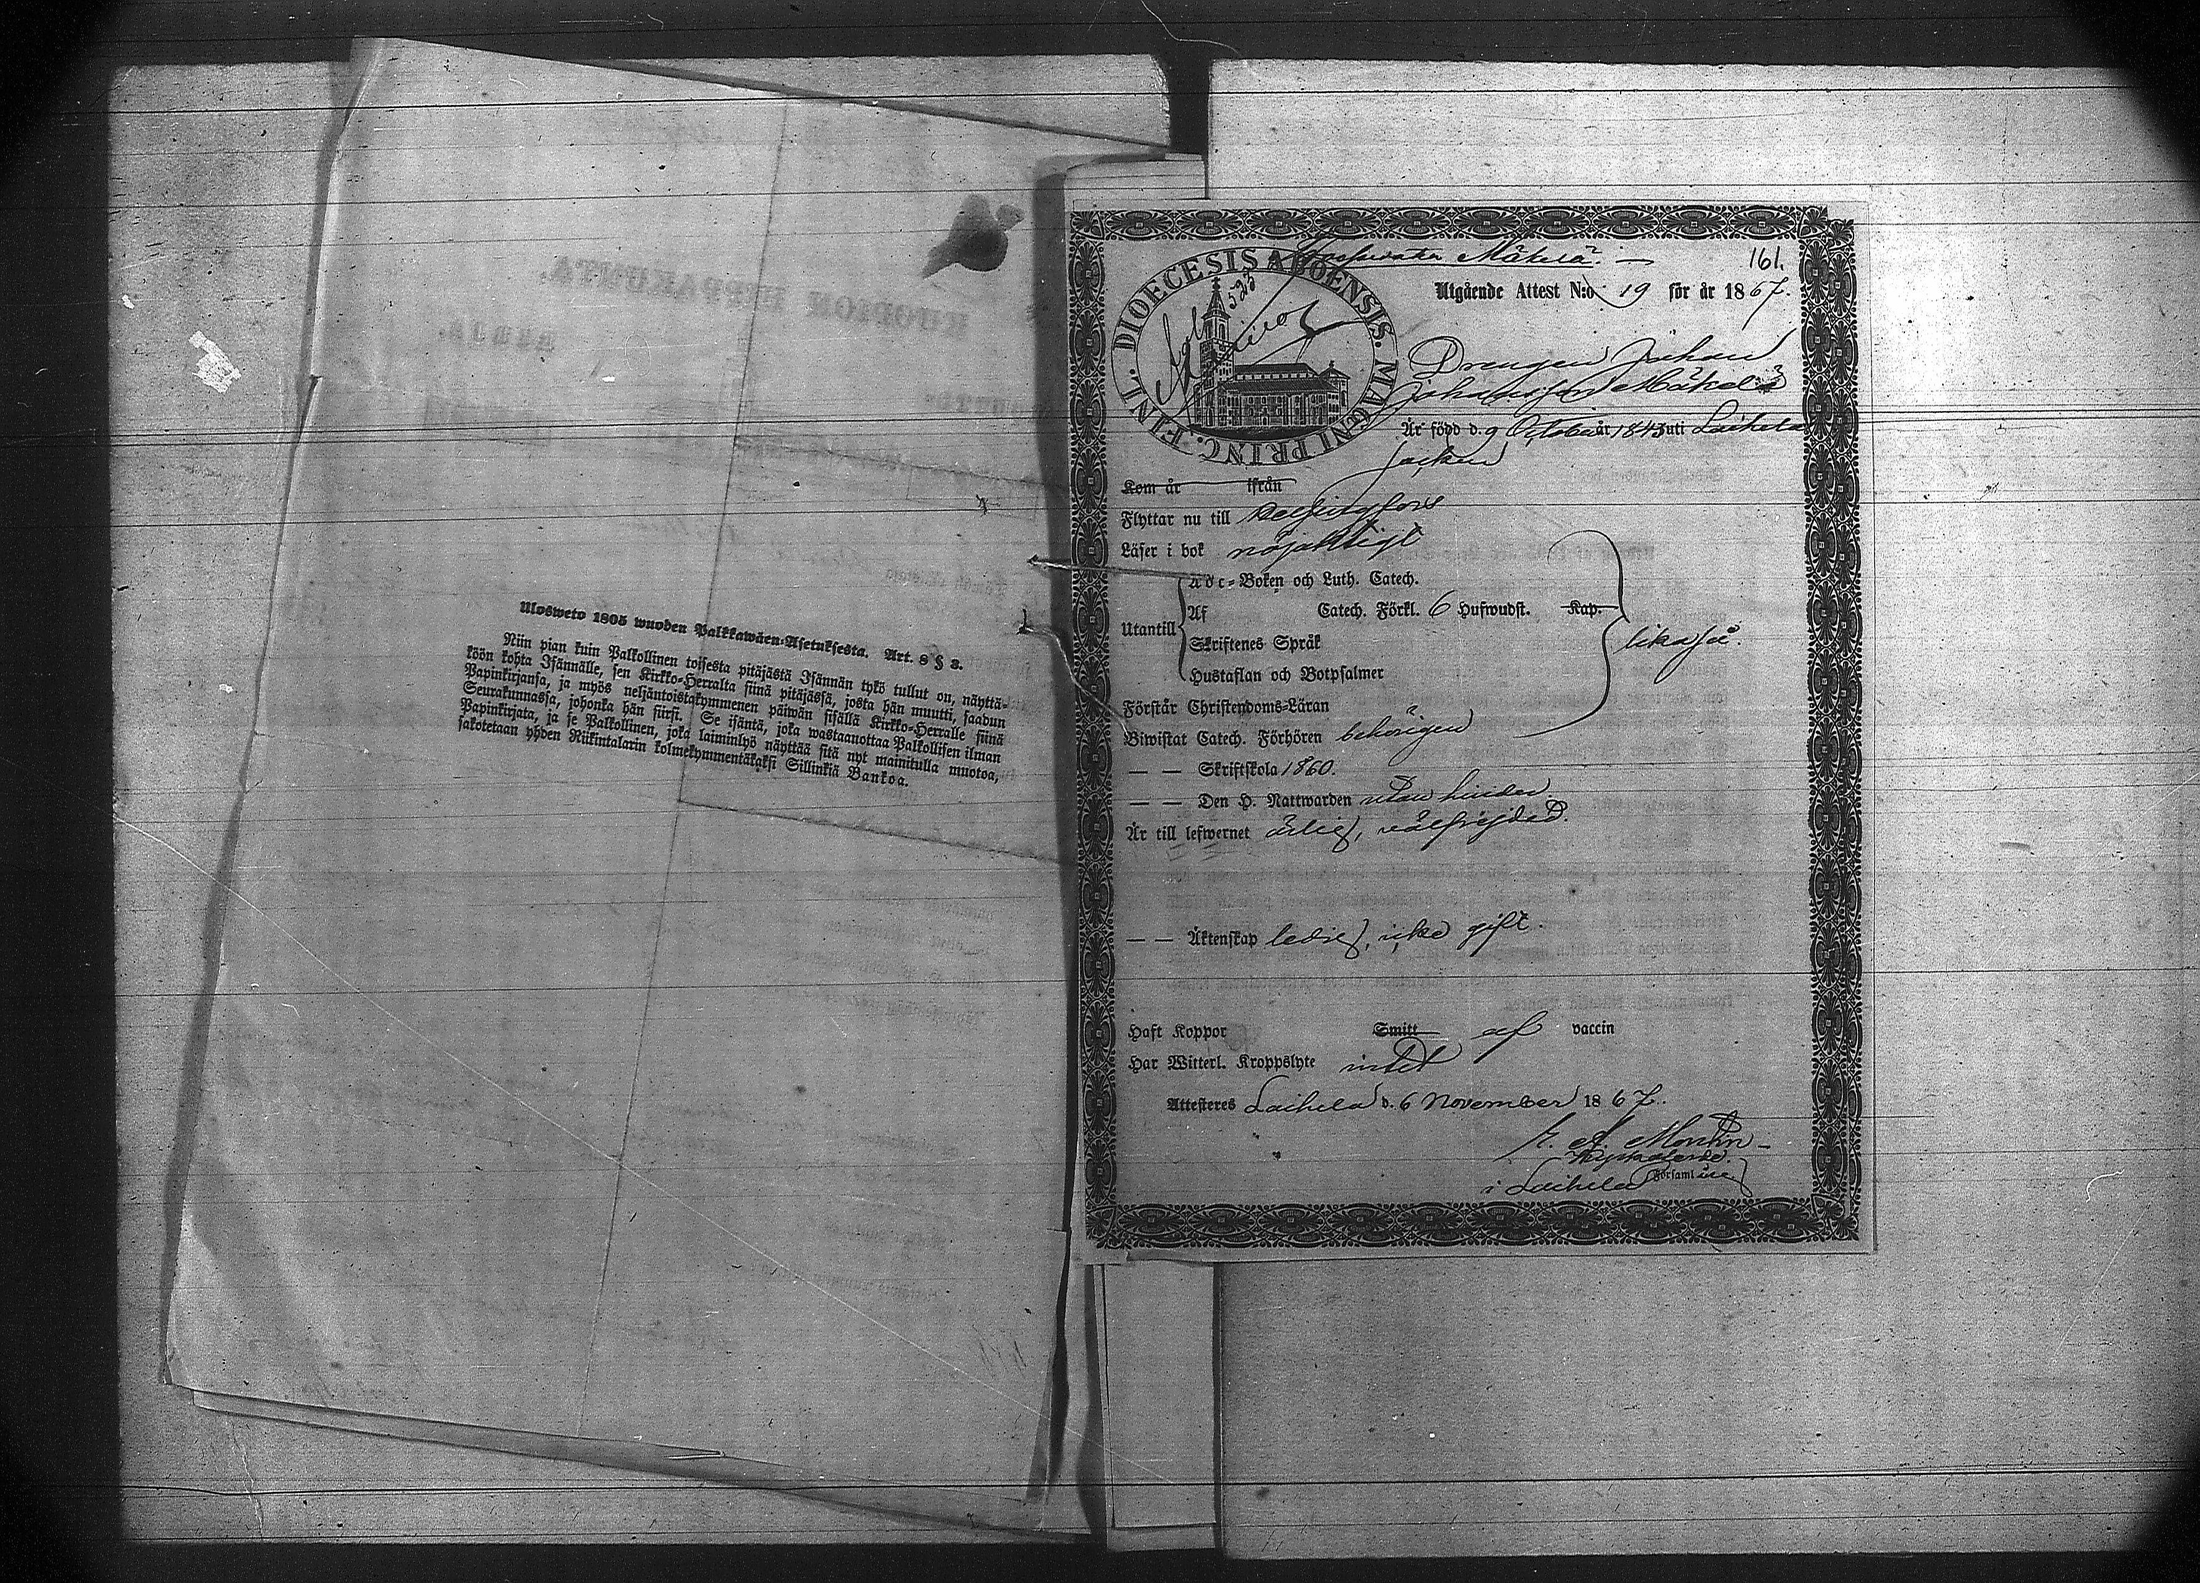 Ulosweto 1805 wuoden Palkkawäen-Asetuksesta. Art. 8 § 3.
Niin pian kuin Palkollinen toisesta pitäjästä Isännän tykö tullut on, näyttä-
köön kohta Isännälle, sen Kirkko-Herralta siinä pitäjässä, josta hän muutti, saadun
Papinkirjansa, ja myös neljäntoistakymmenen päiwän sisällä Kirkko-Herralle siinä
Seurakunnassa, johonka hän siirsi. Se isäntä, joka wastaanottaa Palkollisen ilman
Papinkirjata, ja se Palkollinen, joka laiminlyö näyttää sitä nyt mainitulla muotoa,
sakotetaan yhden Riikintalarin kolmekymmentäkaksi Sillinkiä Bankoa.
Mäkelä. 161.
DIOECESIS ABOENSIS. MAGNI PRINC. FINL.
523
Utgående Attest N:o 19 för år 1867.
Drengen Johan
Johansson Mäkelä
Är född d. 9 October år 1843 uti Laihela
Socken
Kom år ifrån
Flyttar nu till Helsingfors
Läser i bok nöjaktigt
Abc-Boken och Luth. Catech.
Af Catech. Förkl. 6 Hufwudst. Kap.
Utantill
Skriftenes Språk
likaså.
Hustaflan och Botpsalmer
Förstår Christendoms-Läran
Biwistat Catech. Förhören behörigen
— — Skriftskola 1860.
— — Den H. Nattwarden utan hinder
Är till lefwernet ärlig, välfrejdad.
— — Äktenskap ledig, icke gift.
Haft Koppor Smitt af vaccin
Har Witterl. Kroppslyte intet
Attesteres Laihela d. 6 November 1867.
A. Montin
i Laihela Församl